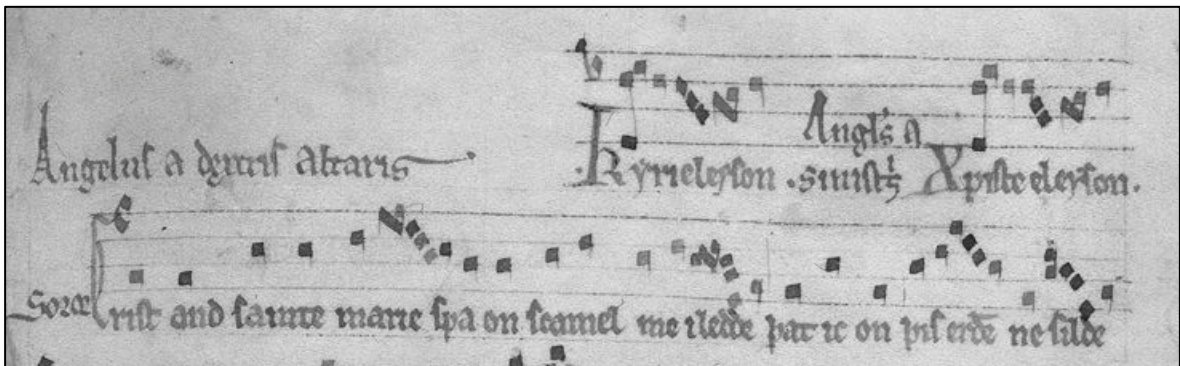 Anglꝰs a
Angelus a dextris altaris Kyrieleyson . sinistrꝫ Xpiste eleyson.
Soror Crist and sainte marie sƿa on scamel me iledde þat ic on þis erðe ne silde